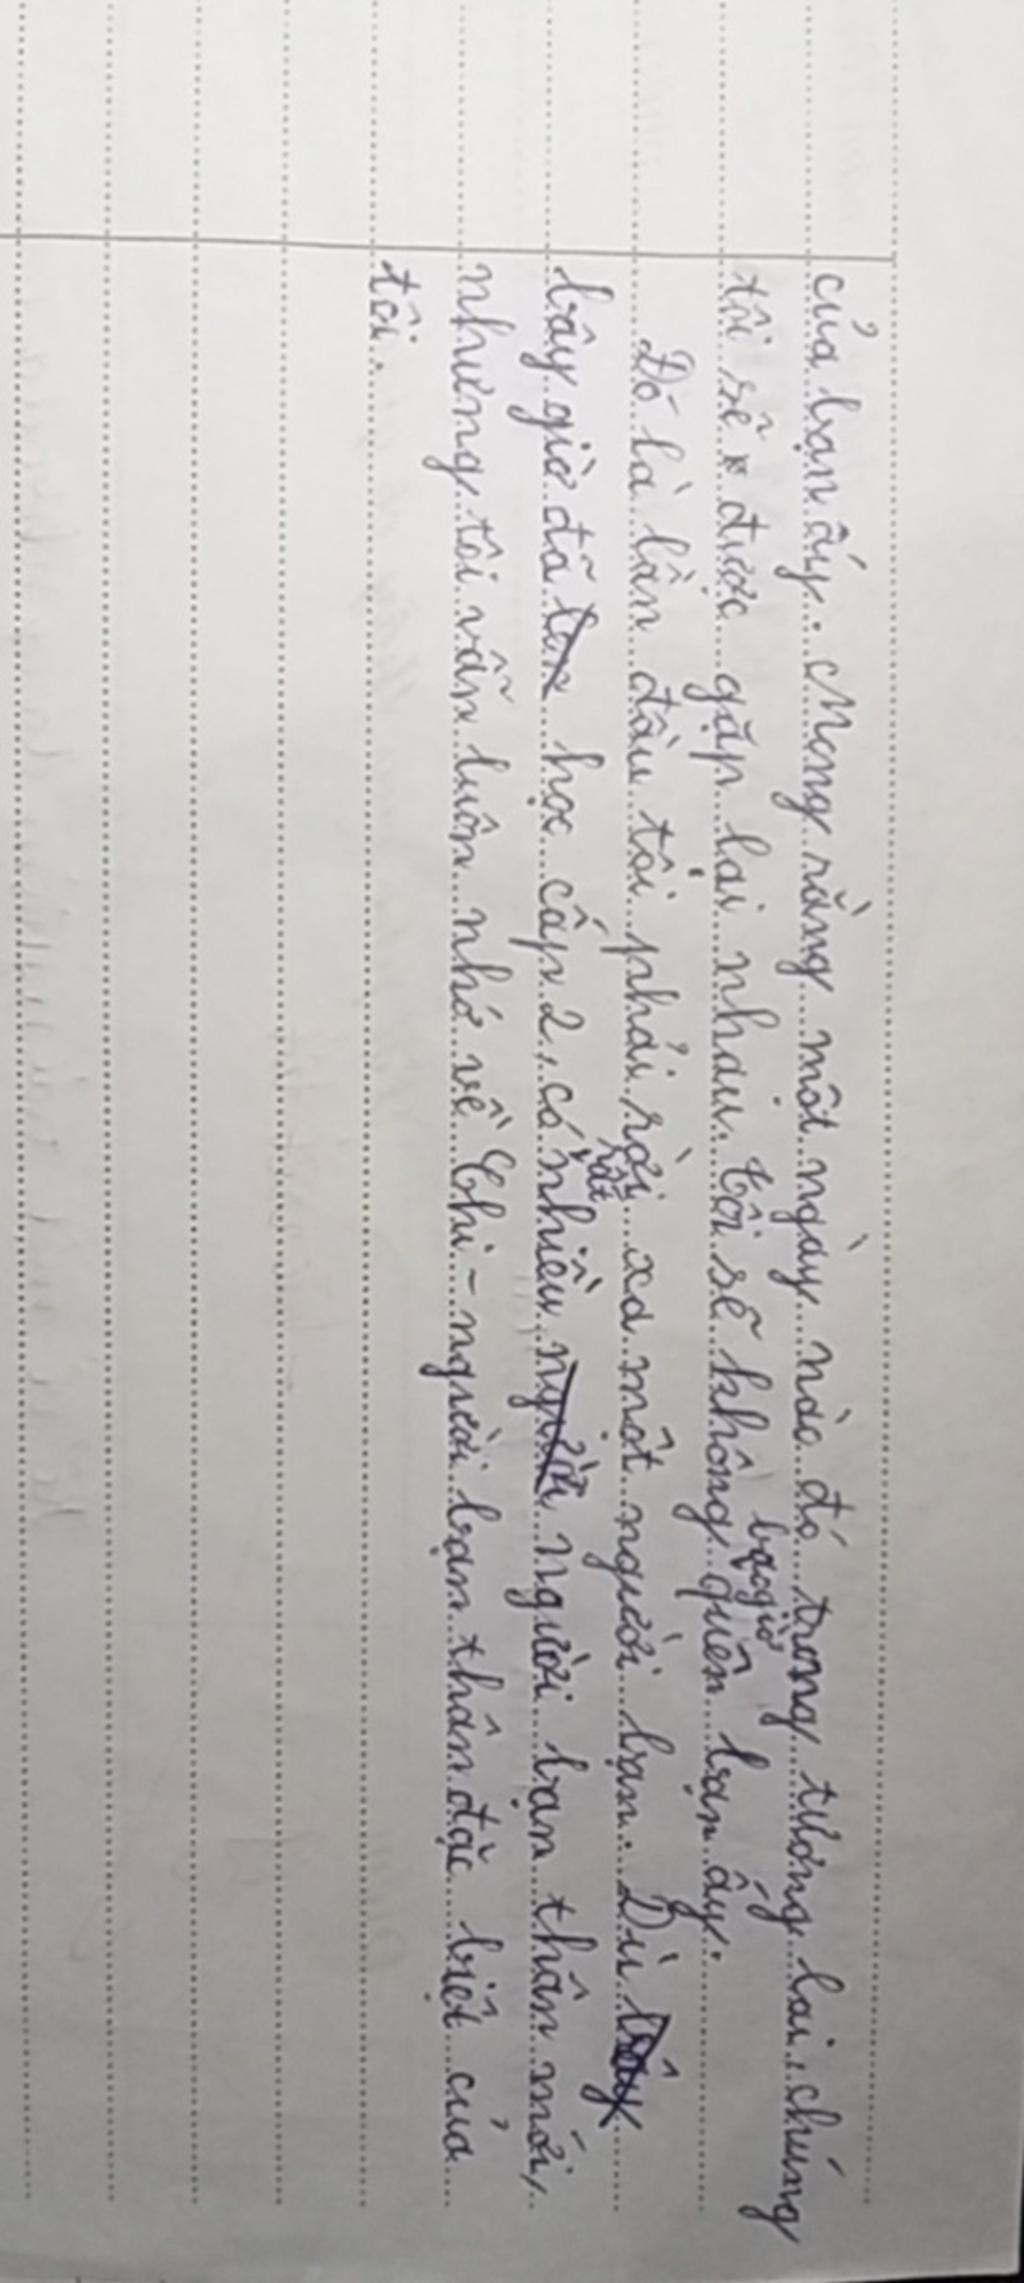 của bạn ấy. Mong rằng một ngày nào đó trong tương lai, chúng
tôi sẽ được gặp lại nhau. Tôi sẽ không bao giờ quên bạn ấy.
Đó là lần đầu tôi phải rời xa một người bạn. Dù bây
bây giờ đã học cấp 2, có rất nhiều người người bạn thân mới,
nhưng tôi vẫn luôn nhớ về Chi - người bạn thân đặc biệt của
tôi.